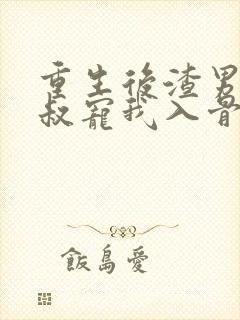 重生後渣男
叔寵我入骨
飯島愛